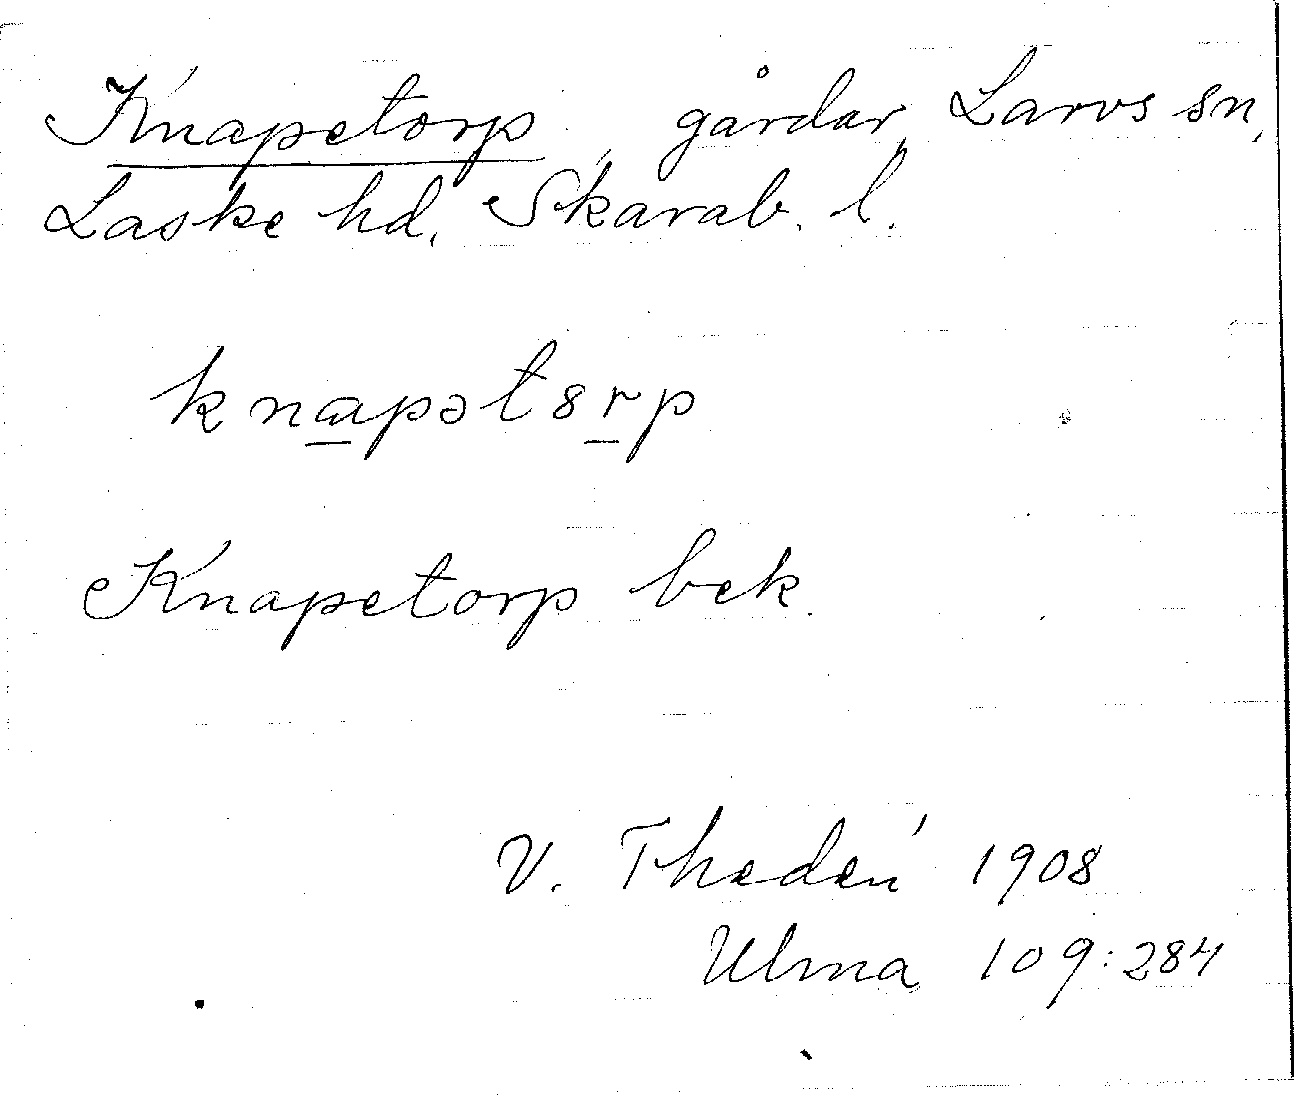 Knapetorp, gårdar, Larvs sn,
Laske hd, Skarab. l.
knapət8rp
Knapetorp bek.
V. Thedén 1908
Ulma 109:284